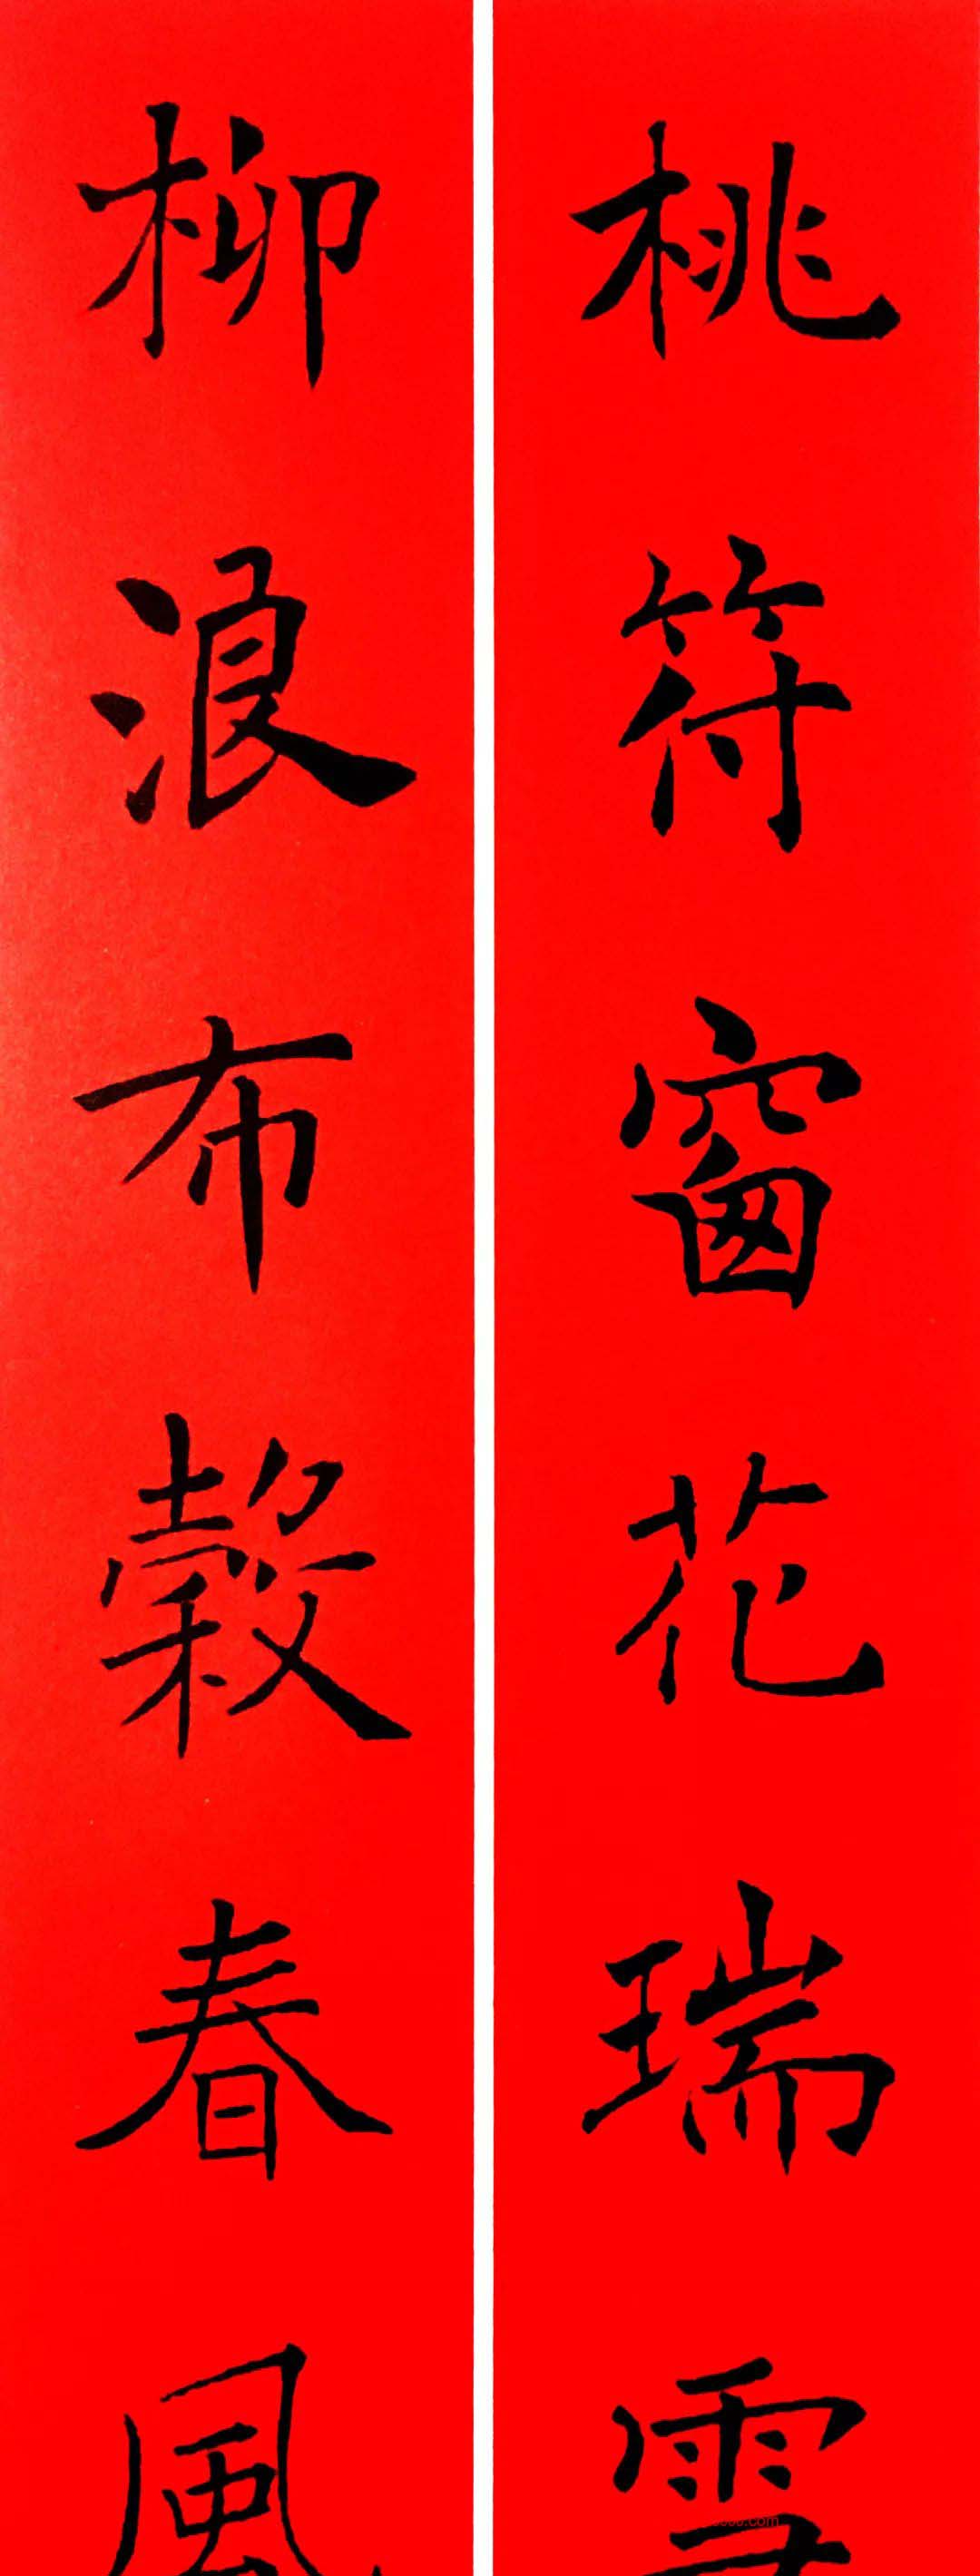 桃符窗花瑞雪
柳浪布穀春風